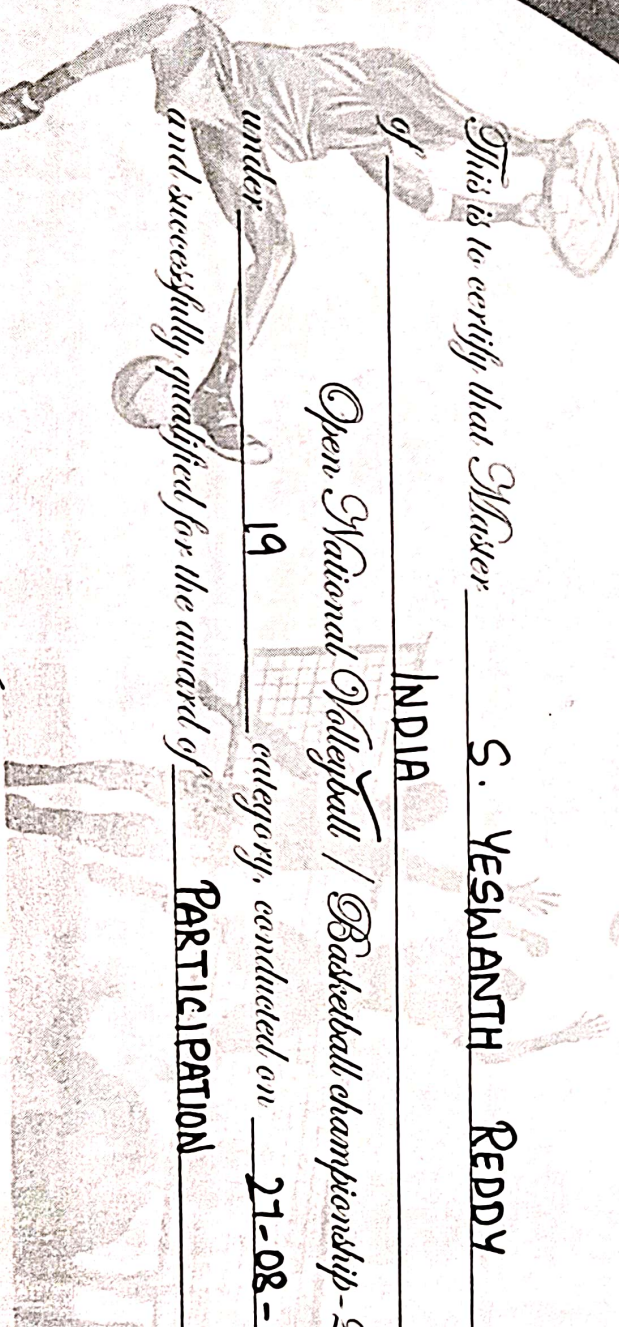 This is to certify that Master S. YESWANTH REDDY
of INDIA
Open National Volleyball ✓ / Basketball championship-
under 19 category, conducted on 27-08-
and successfully qualified for the award of PARTICIPATION